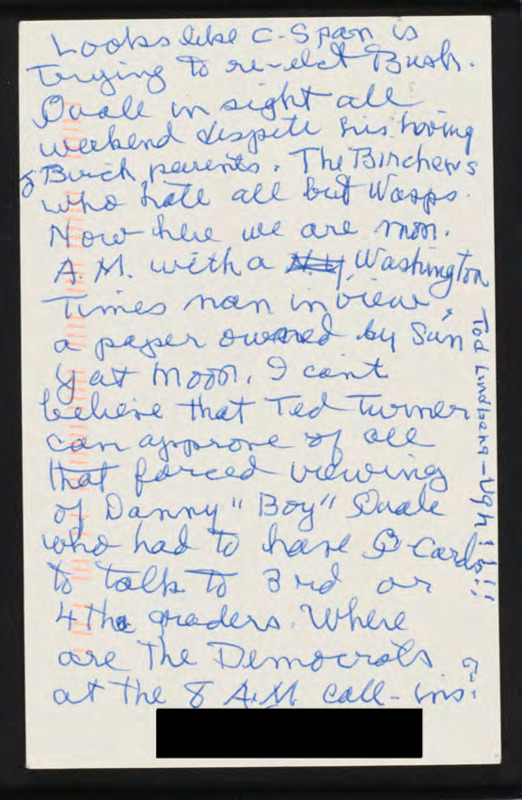 Looks like C-Span is
trying to re-elect Bush.
Quale in sight all
weekend dispite his having
Birch parents. The Birchers
who hate all but Wasps.
Now here we are mon.
A.M. with a N.Y. Washington
Times man in view,
a paper owned by Sun
Yat Moon. I can't
believe that Ted Turner
can approve of all
that forced viewing
of Danny "Boy" Quale
who had to have Q-Cards
to talk to 3rd or
4th graders. Where
are the Democrats
at the 8 A.M. call-ins
Tod Lindberg-Ugh!!!!